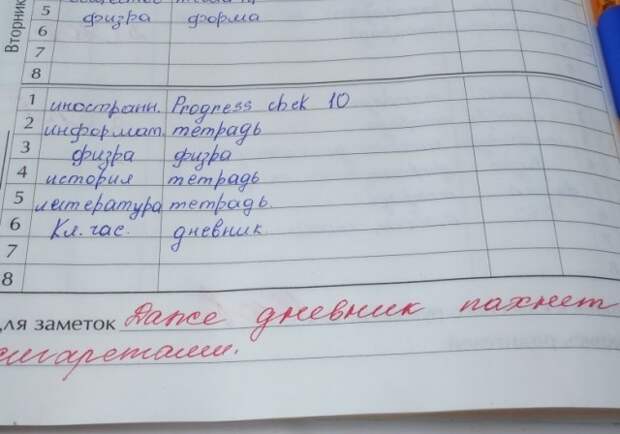 Вторник
5 физра форма
6
7
8
1 иностранн. Progress chek 10
2 информат. тетрадь
3 физра физра
4 история тетрадь
5 литература тетрадь.
6 Кл. час. дневник
7
8
для заметок Даже дневник пахнет
сигаретами.